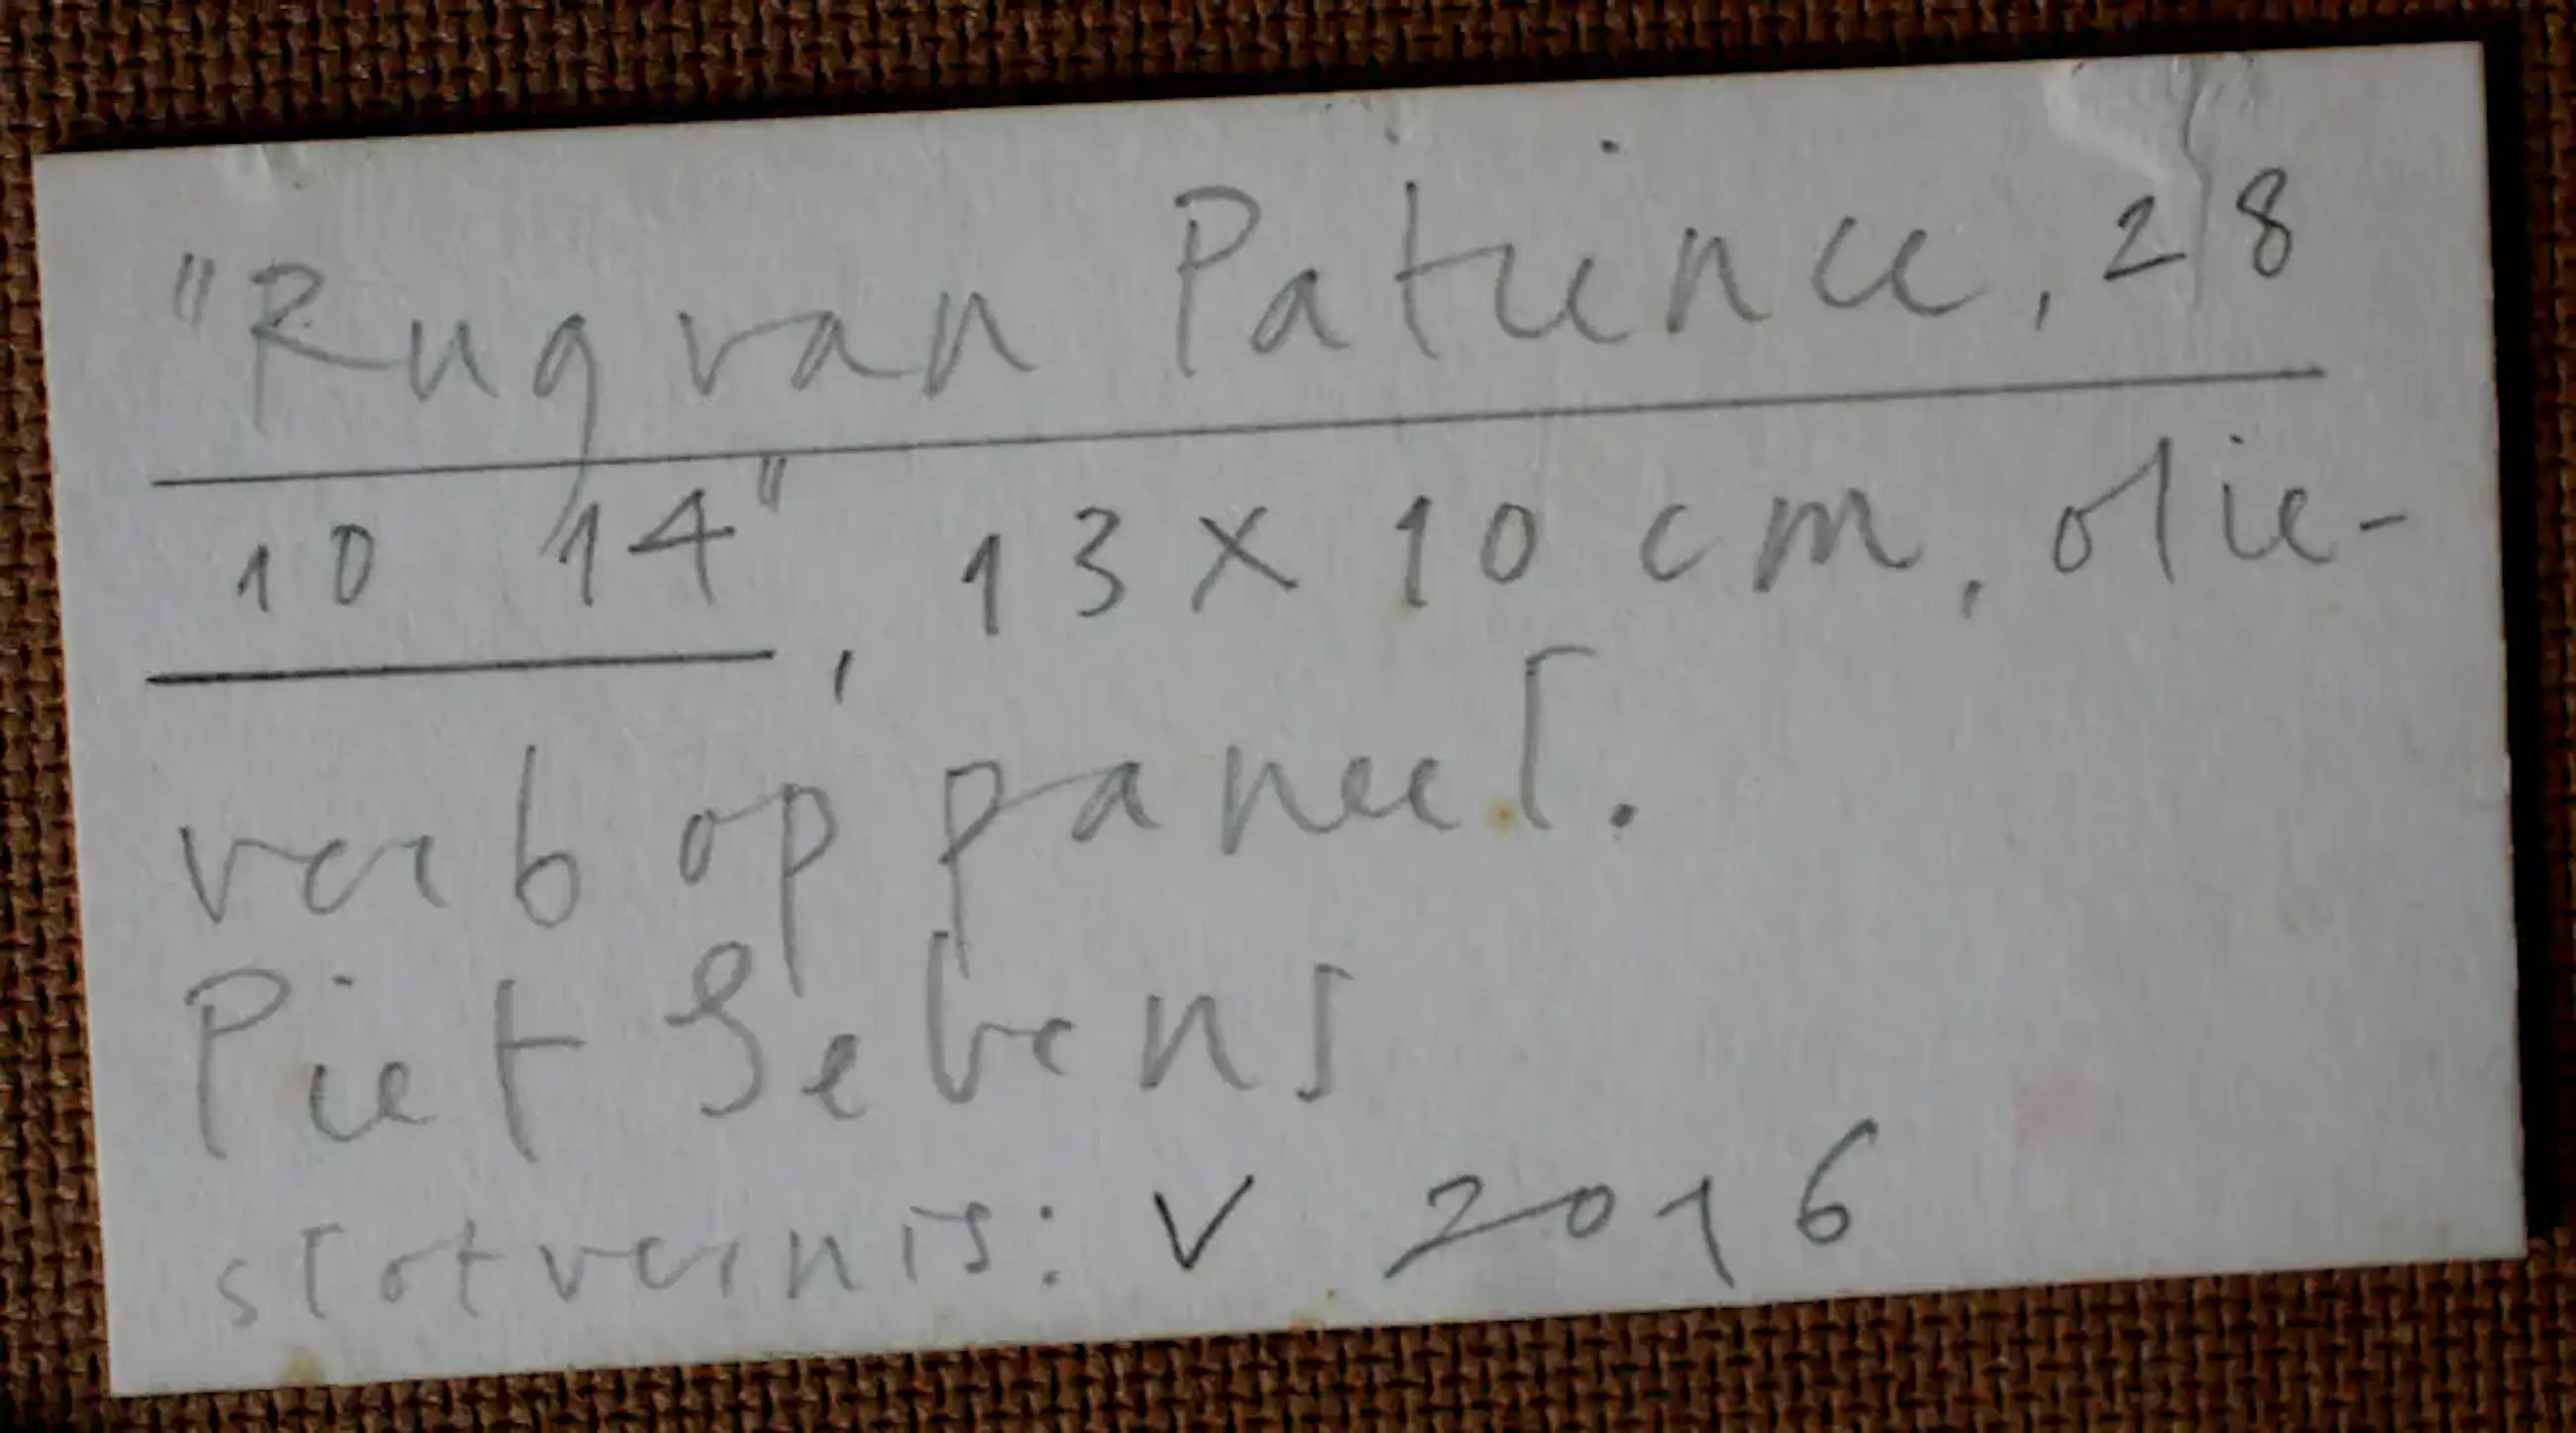 "Rug van Patience, 28
10 14", 13 x 10 cm, olie-
verb op paneel.
Piet Sebens
slotvernis: V 2016